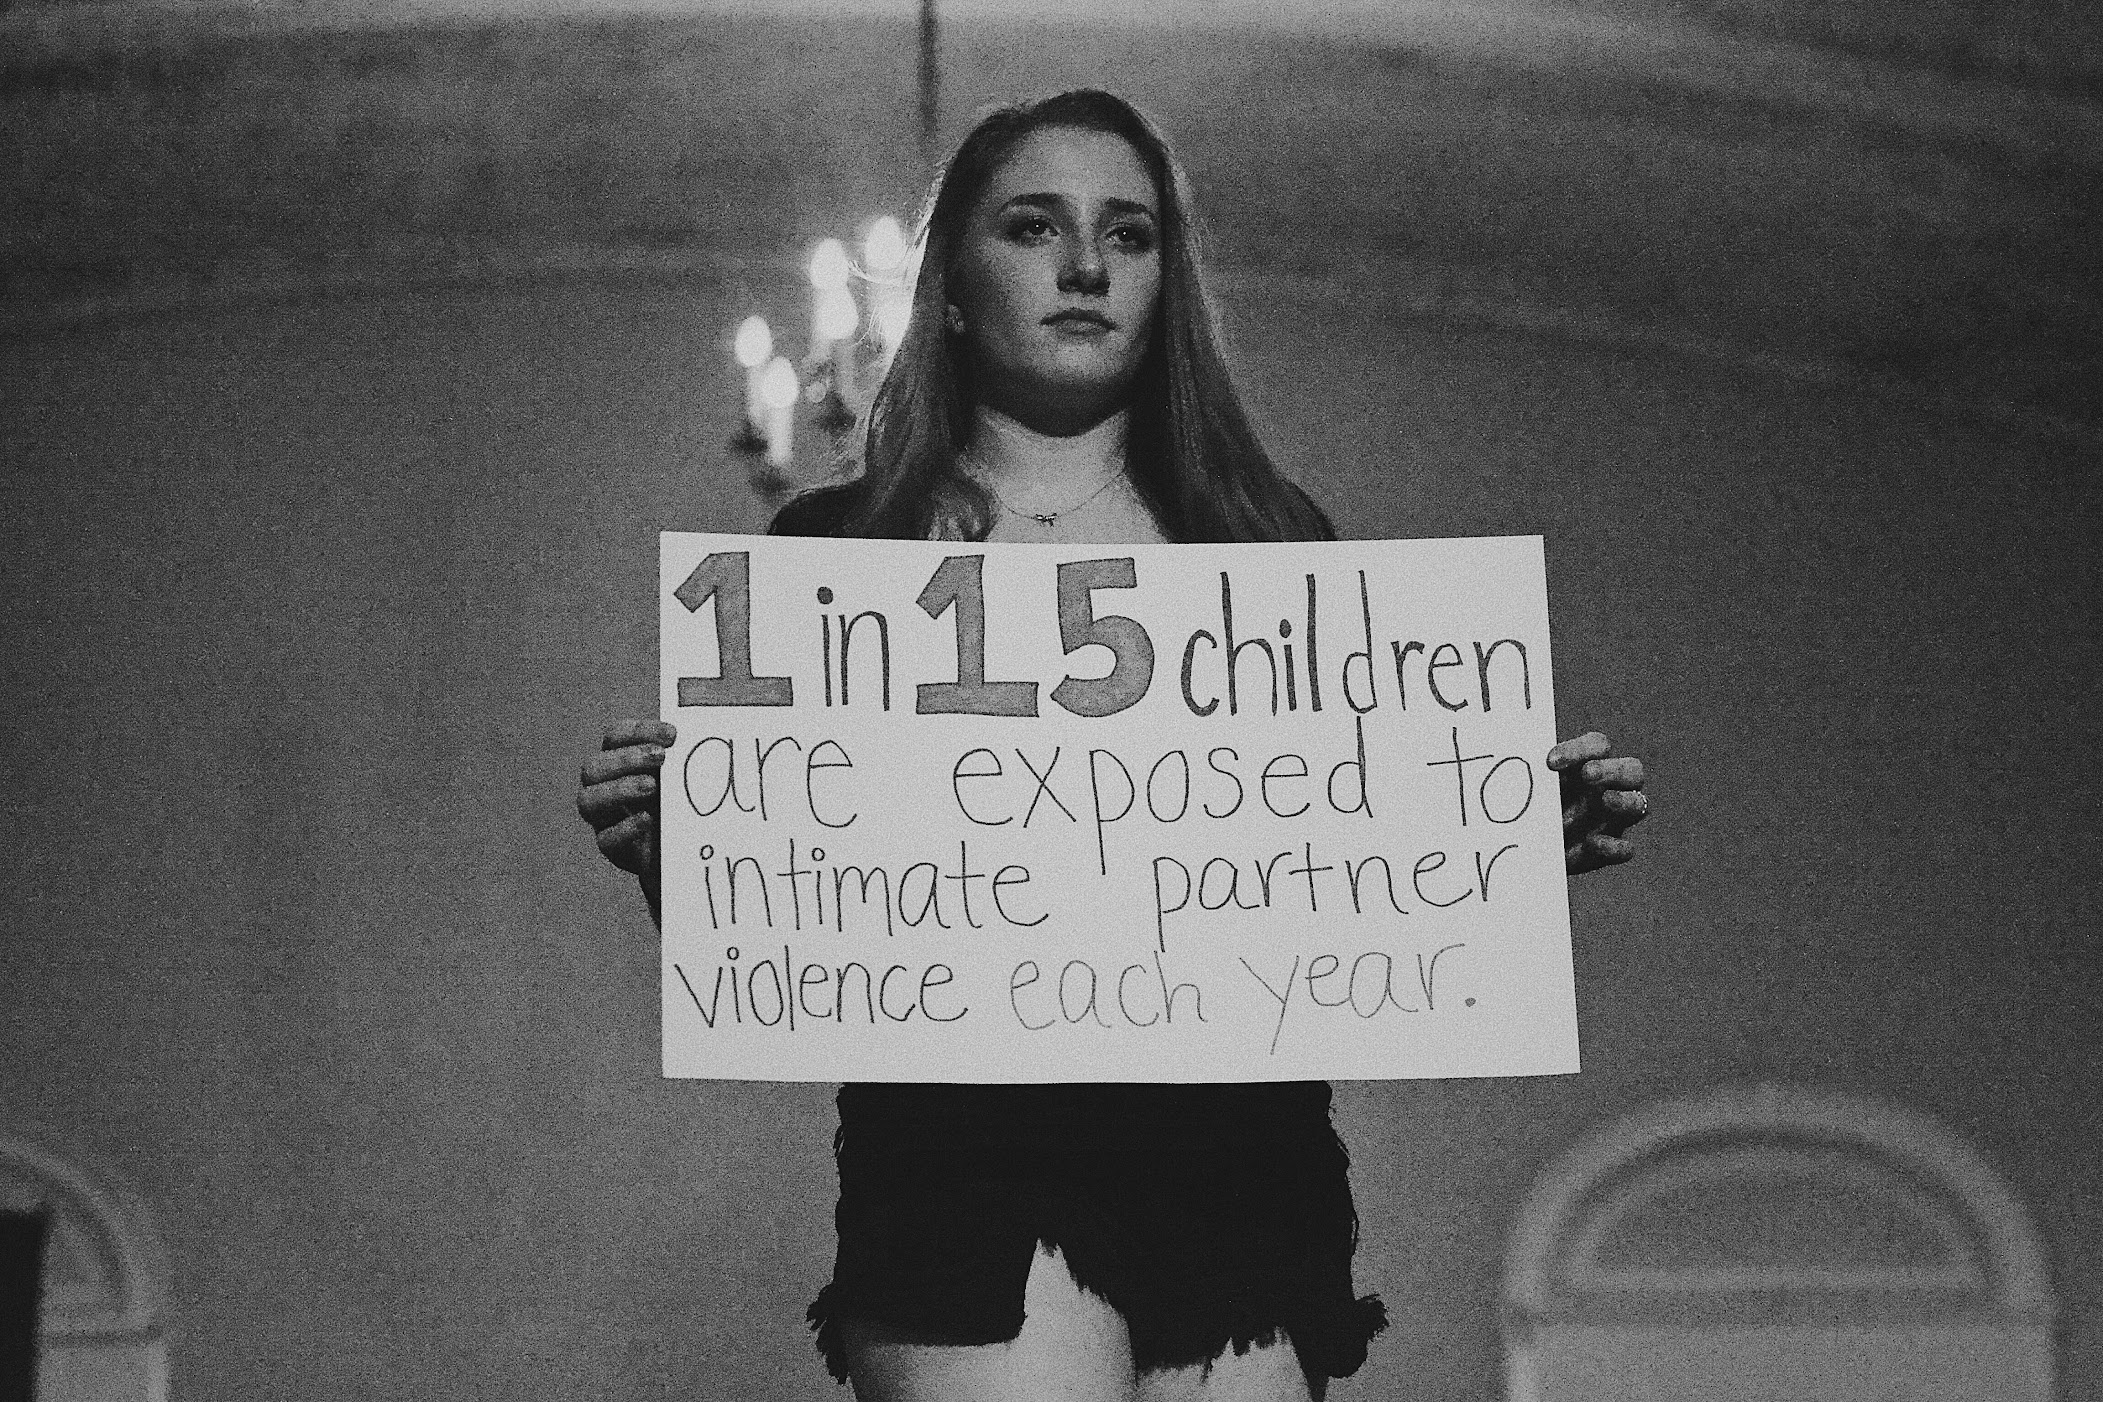 1 in 15 children
are exposed to
intimate partner
violence each year.